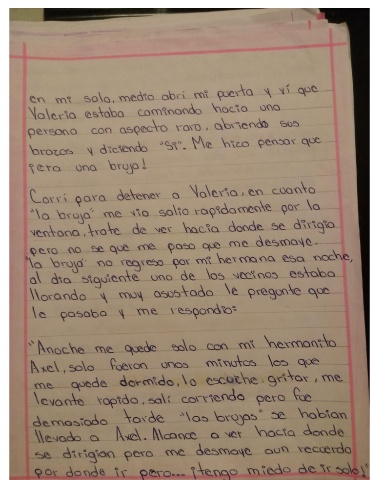 en mi sala, medio abri mi puerta y ví que
Valeria estaba caminando hacia una
persona con aspecto raro, abriendo sus
brazos y diciendo "Si". Me hizo pensar que
¡era una bruja!
Corrí para detener a Valeria, en cuanto
"la bruja" me vio salio rapidamente por la
ventana, trate de ver hacia donde se dirigia
pero no se que me paso que me desmaye.
"la bruja" no regreso por mi hermana esa noche,
al dia siguiente uno de los vecinos estaba
llorando y muy asustado le pregunte que
le pasaba y me respondio:
"Anoche me quede solo con mi hermanito
Axel, solo fueron unos minutos los que
me quede dormido, lo escuche gritar, me
levante rapido, sali corriendo pero fue
demasiado tarde "las brujas" se habian
llevado a Axel. Alcance a ver hacia donde
se dirigian pero me desmaye aun recuerdo
por donde ir pero... ¡tengo miedo de ir solo!"